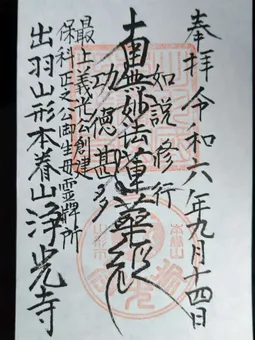 奉拝 令和六年九月十四日
如説修行
南無妙法蓮華経
功徳甚多
最上義光公創建
保科正之公御生母霊牌所
出羽山形本眷山浄光寺
山形市